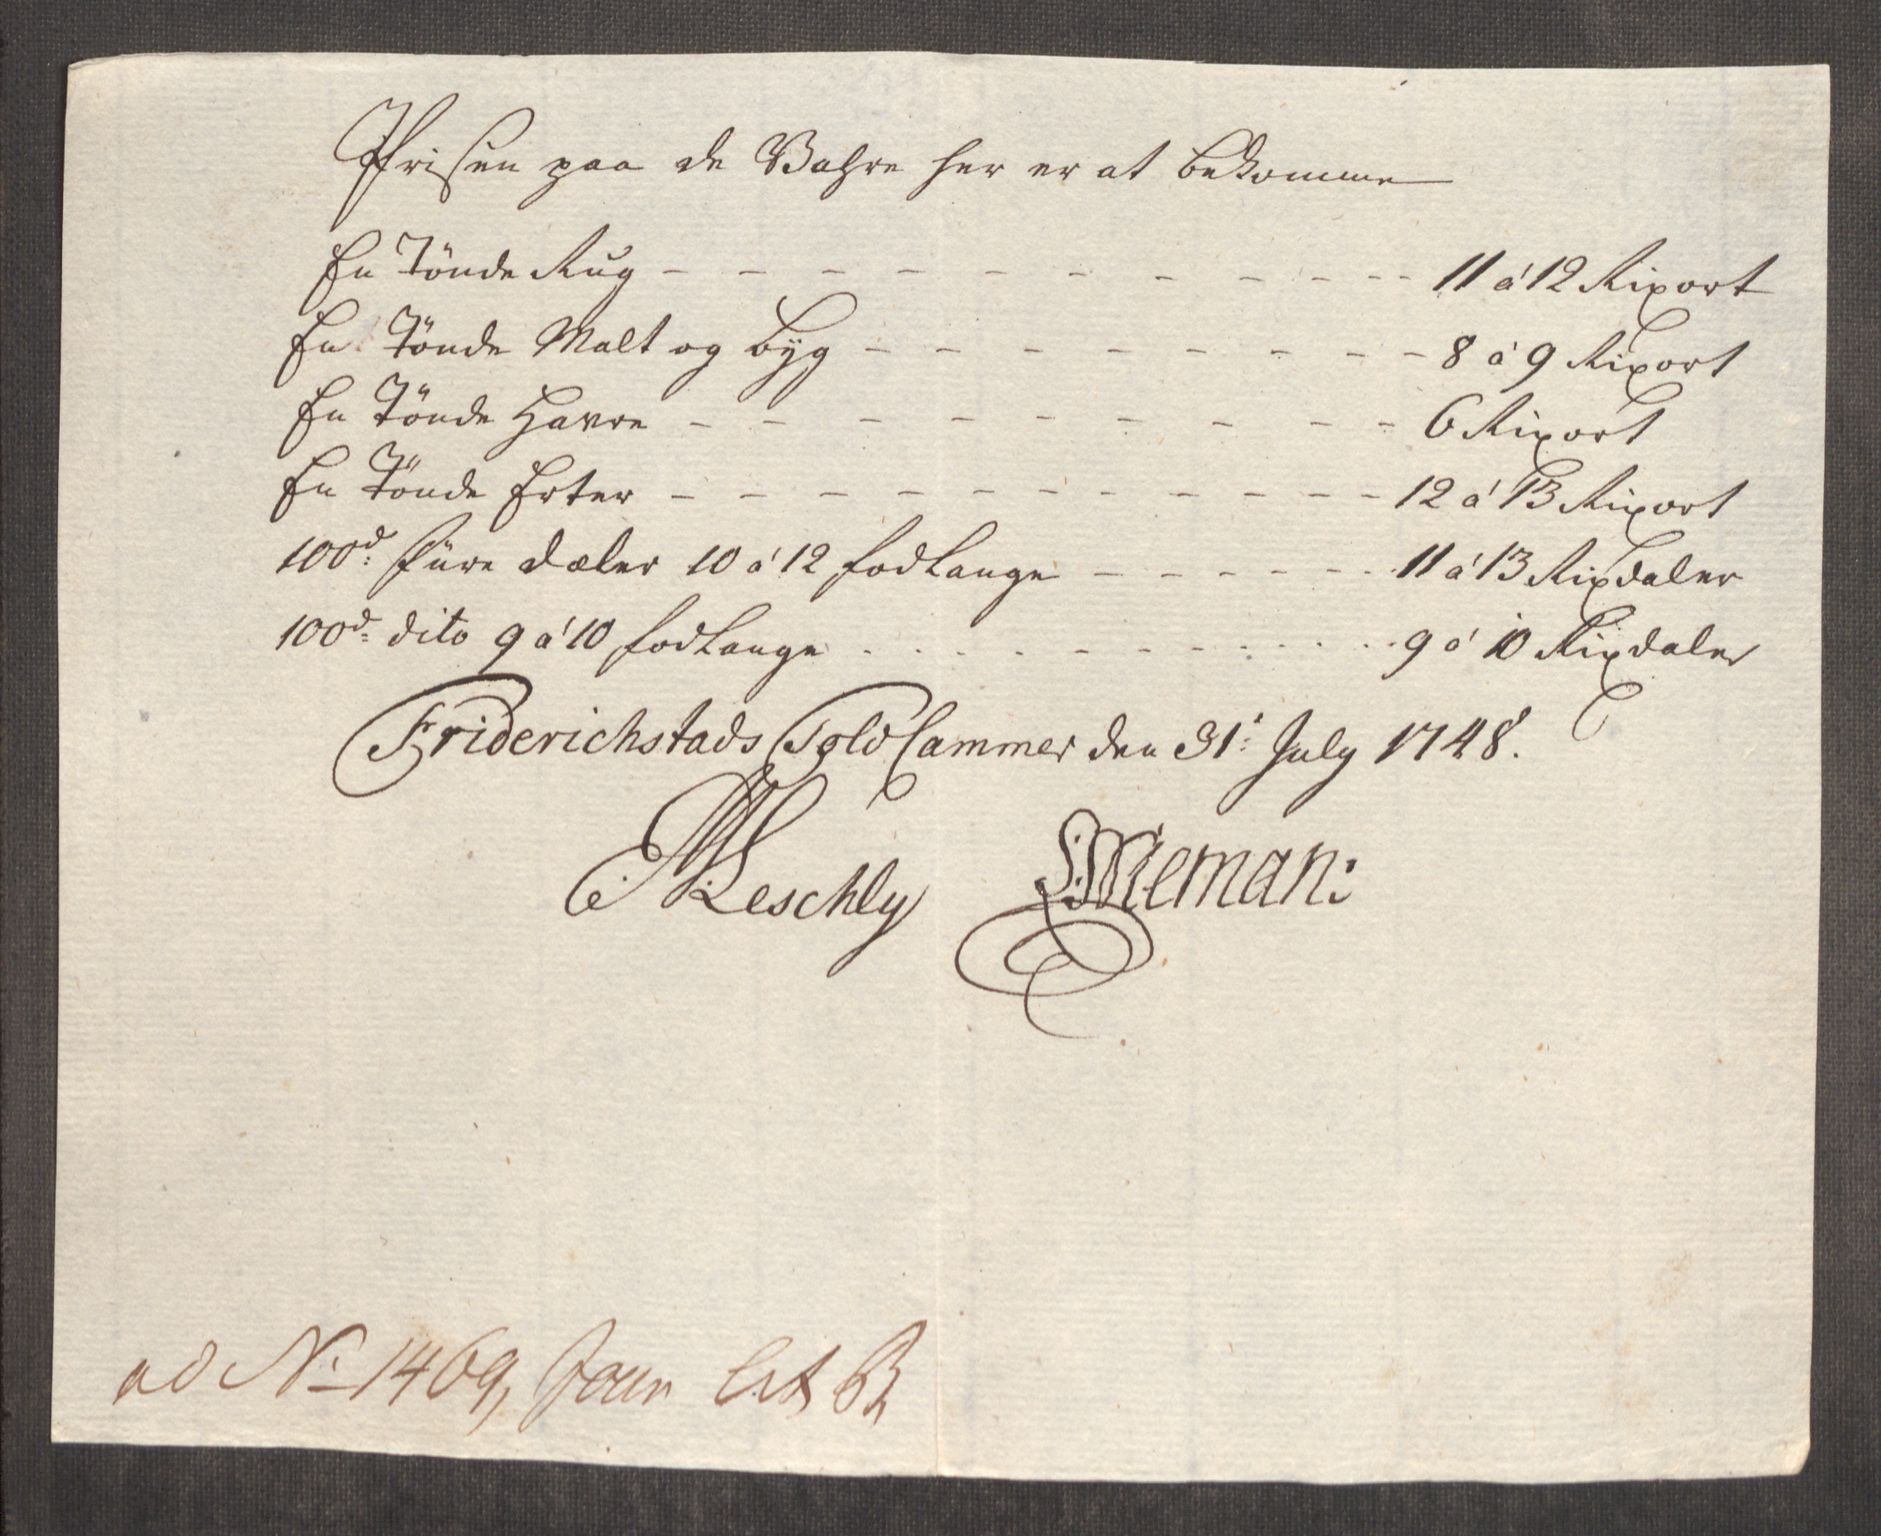 Prisen paa de Vahre her er at bekomme
En Tönde Rug - - - - - - - - - - 11 á 12 Rixort
En Tönde Malt og byg - - - - - - - - 8 á 9 Rixort
En Tönde Havre - - - - - - - - - 6 Rixort
En Tönde Erter - - - - - - - - - - 12 á 13 Rixort
100d: füre dæler 10 á 12 fod Lange - - - - - - 11 á 13 Rixdaler
100d= dito 9 á 10 fod Lange . . . - - - - . . . 9 á 10 Rixdaler
Friderichstads Told Cammer den 31: July 1748.
Leschly Wieman:
ad No 1469, Jour Lit B